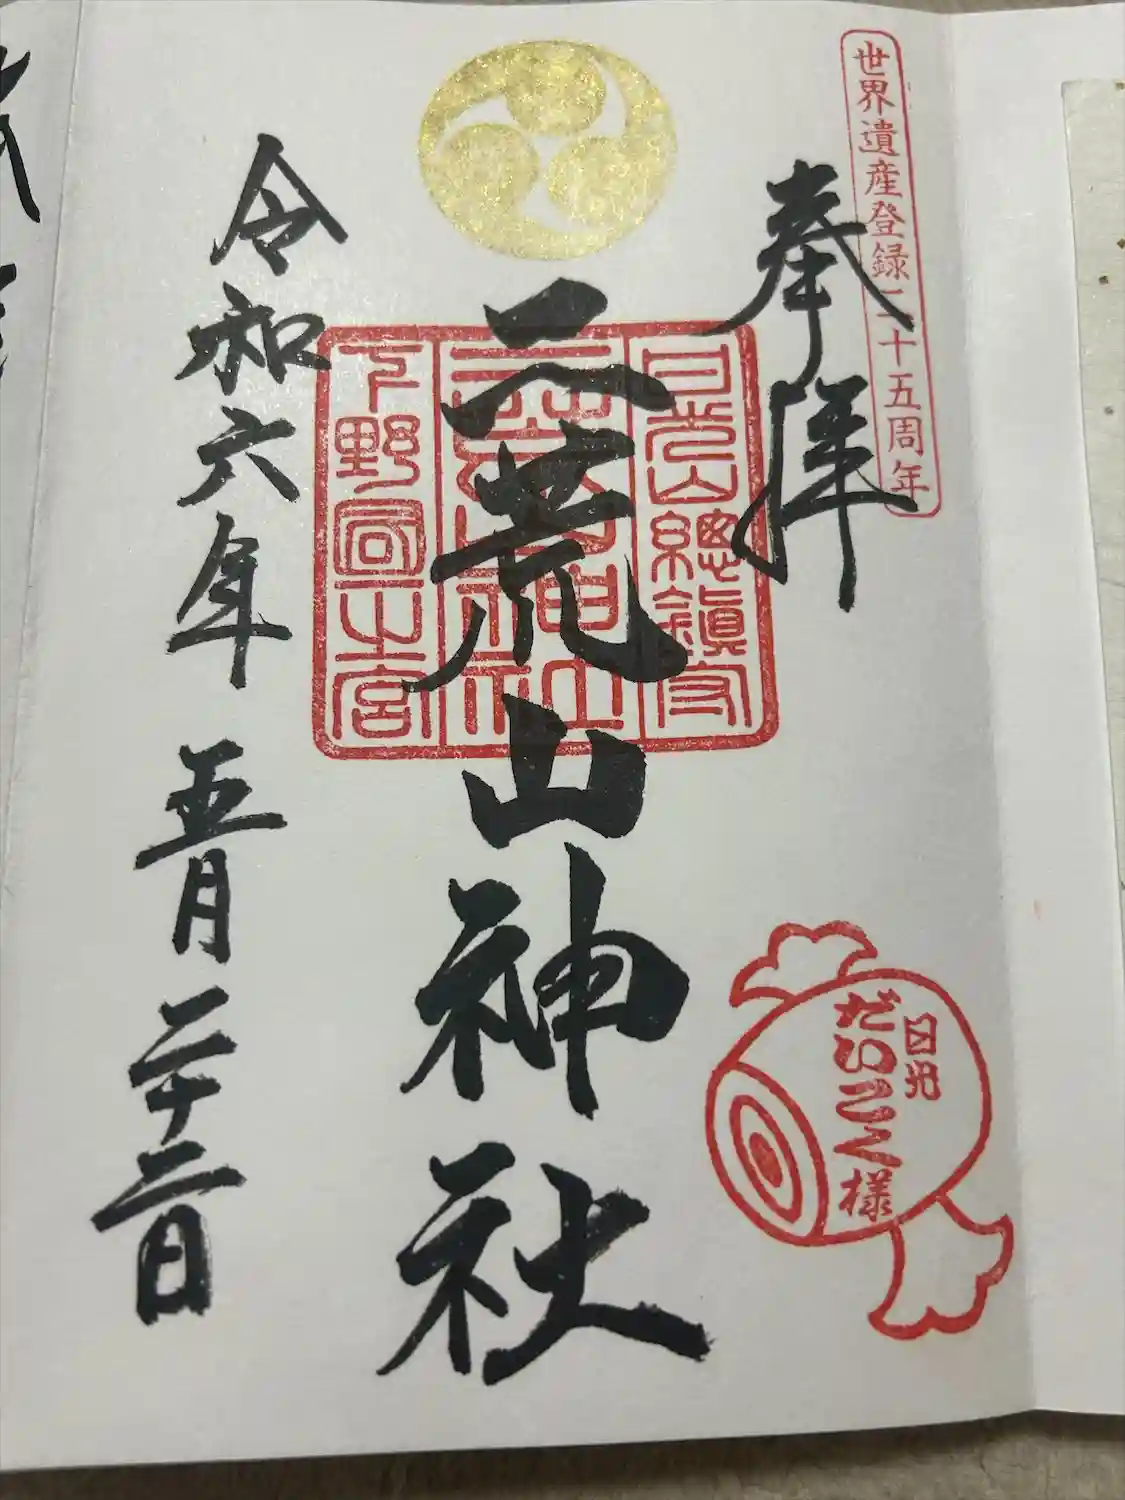 世界遺産登録二十五周年
奉拝
日光山總鎮守
二荒山神社
下野國一之宮
令和六年 五月 二十二日
日光
だいこく様